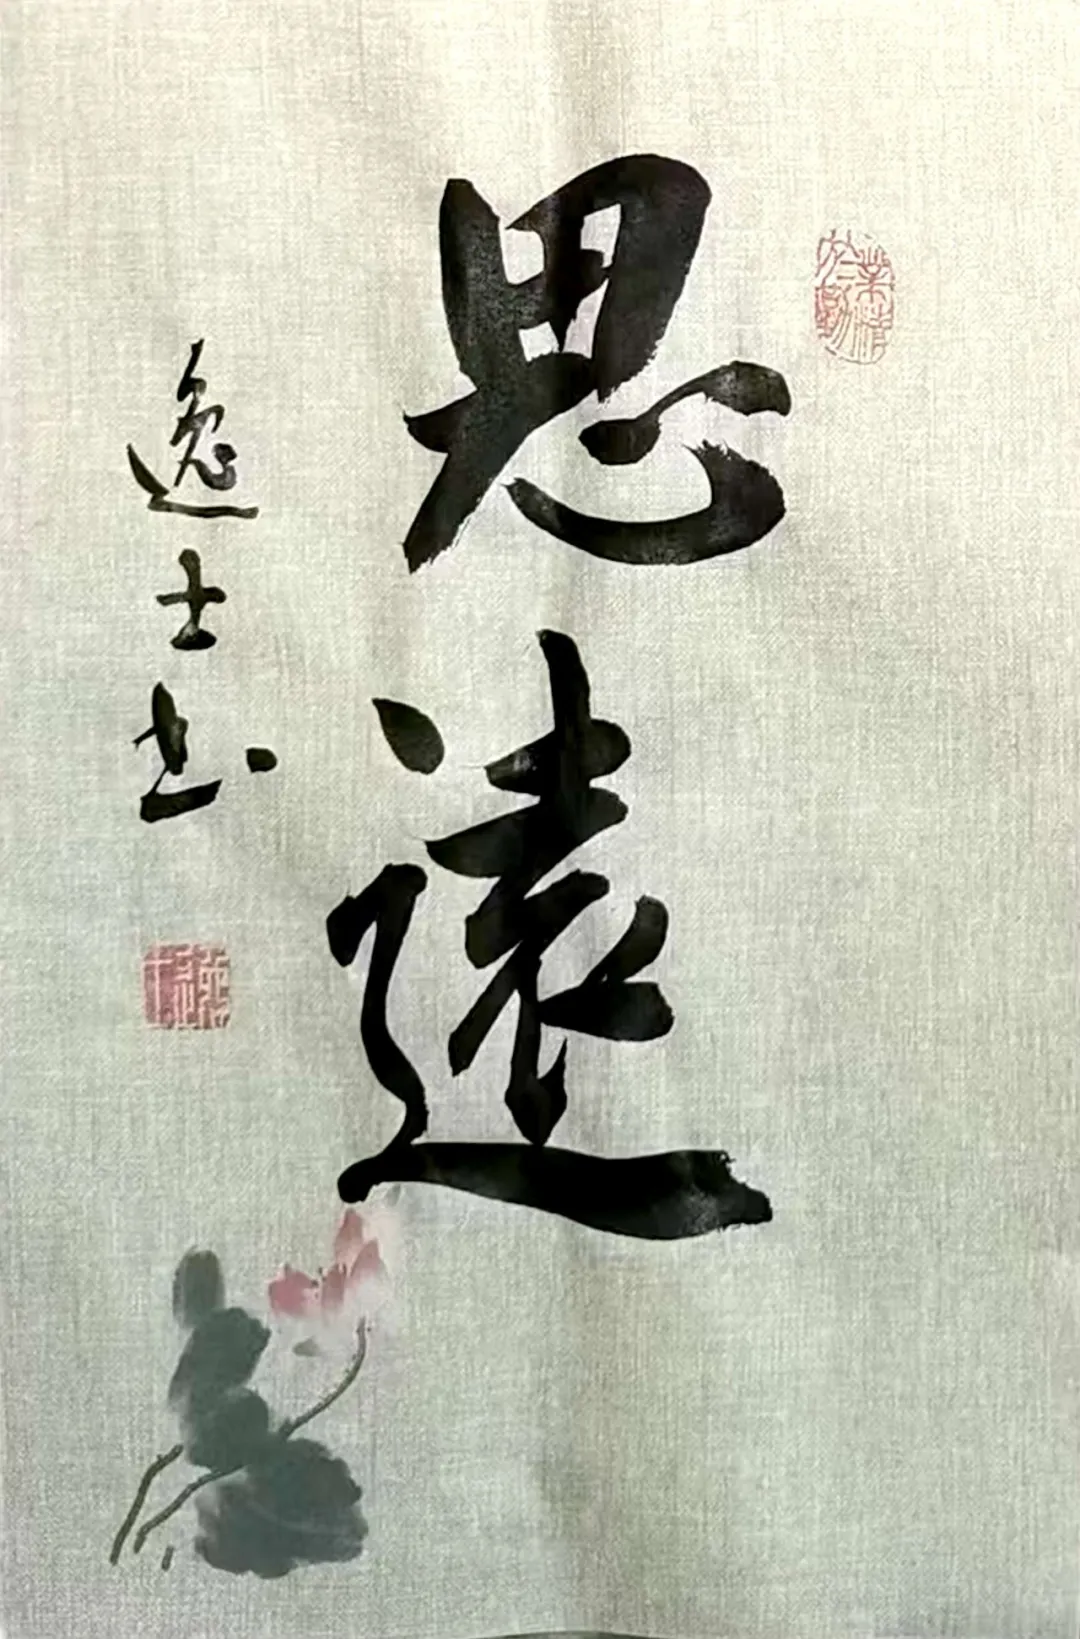 思遠
逸士书